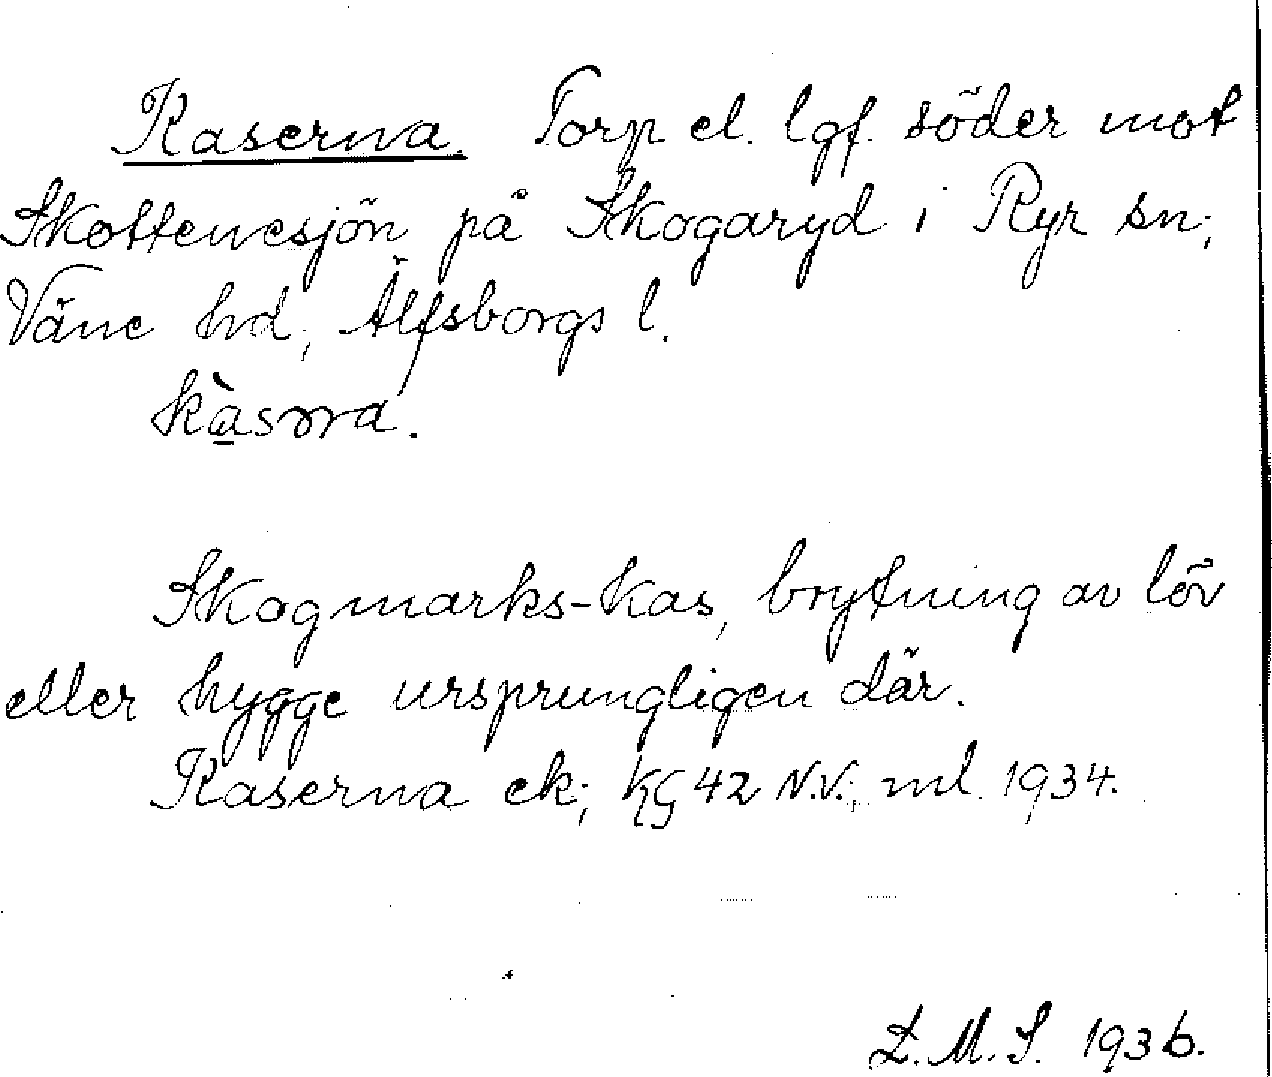 Kaserna. Torp el. lgf. söder mot
Skottenesjön på Skogaryd i Ryr sn;
Väne hd, Älfsborgs l.
Skogmarks-kas, brytning av löv
eller hygge ursprungligen där.
Kaserna ek; KG 42 N.V.; ml. 1934.
L.M.S. 1936.